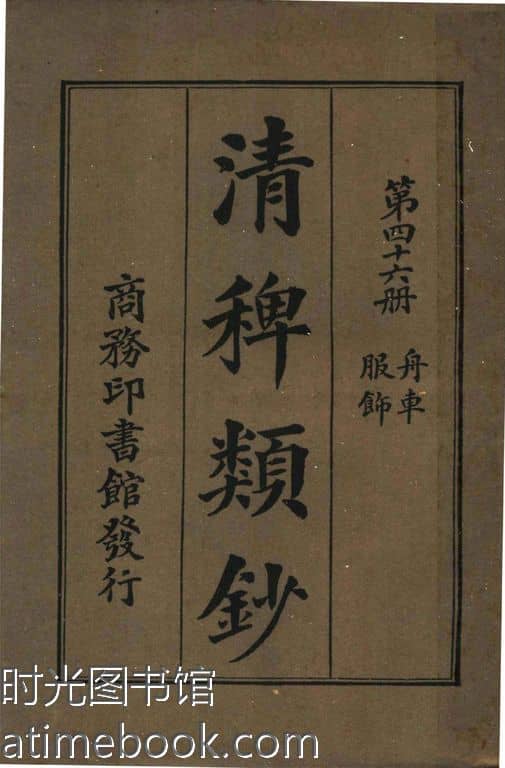 第四十六册
舟車
服飾
清稗類鈔
商務印書館發行
时光图书馆
atimebook.com